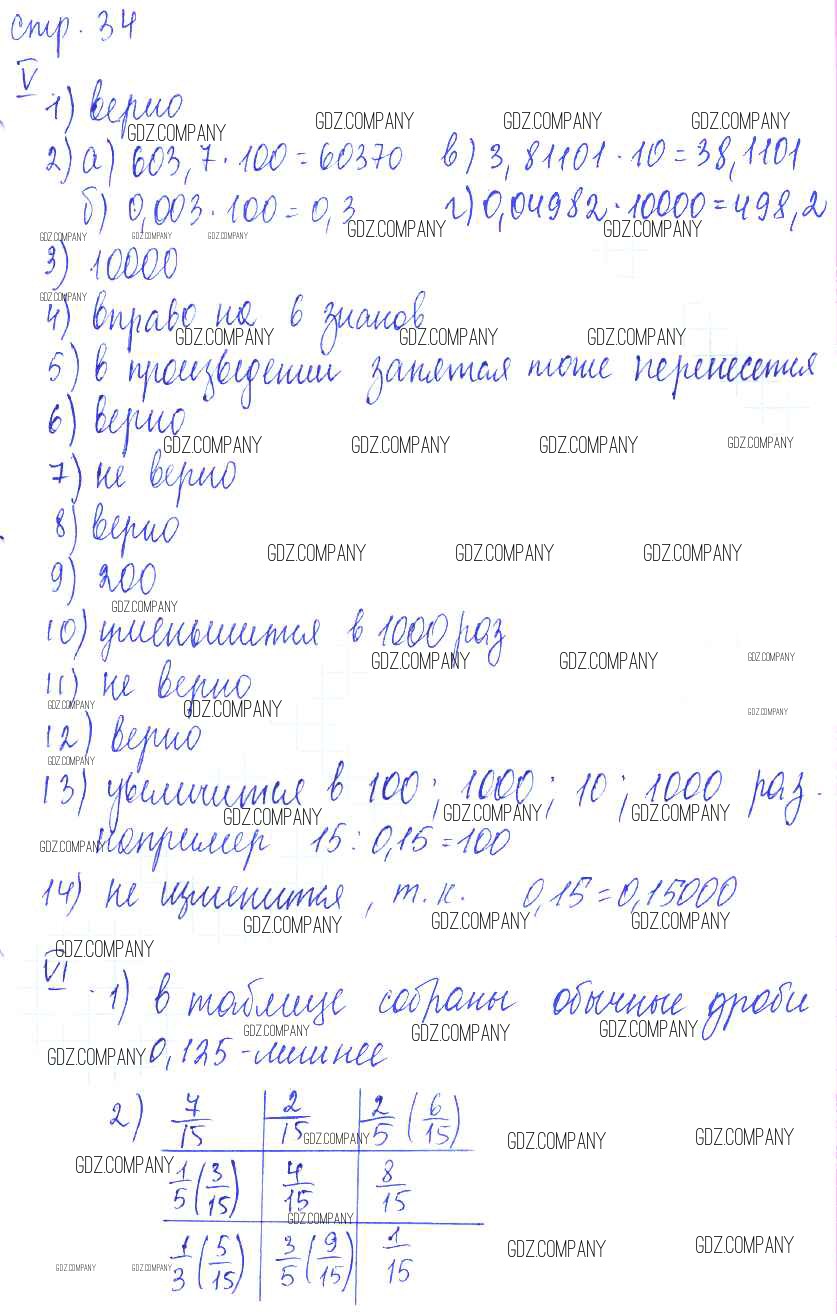 стр. 34
V
1) верно
2) а) 603,7·100=60370 в) 3,81101·10=38,1101
б) 0,003·100=0,3 г) 0,04982·10000=498,2
3) 10000
4) вправо на 6 знаков
5) в произведении запятая тоже перенесется
6) верно
7) не верно
8) верно
9) 200
10) уменьшится в 1000 раз
11) не верно
12) верно
13) увеличится в 100; 1000; 10; 1000 раз.
например 15:0,15=100
14) не изменится, т.к. 0,15=0,15000
VI
1) в таблице собраны обычные дроби
0,125-лишнее
2) 7/15 2/15 2/5 (6/15)
1/5 (3/15) 4/15 8/15
1/3 (5/15) 3/5 (9/15) 1/15
GDZ.COMPANY